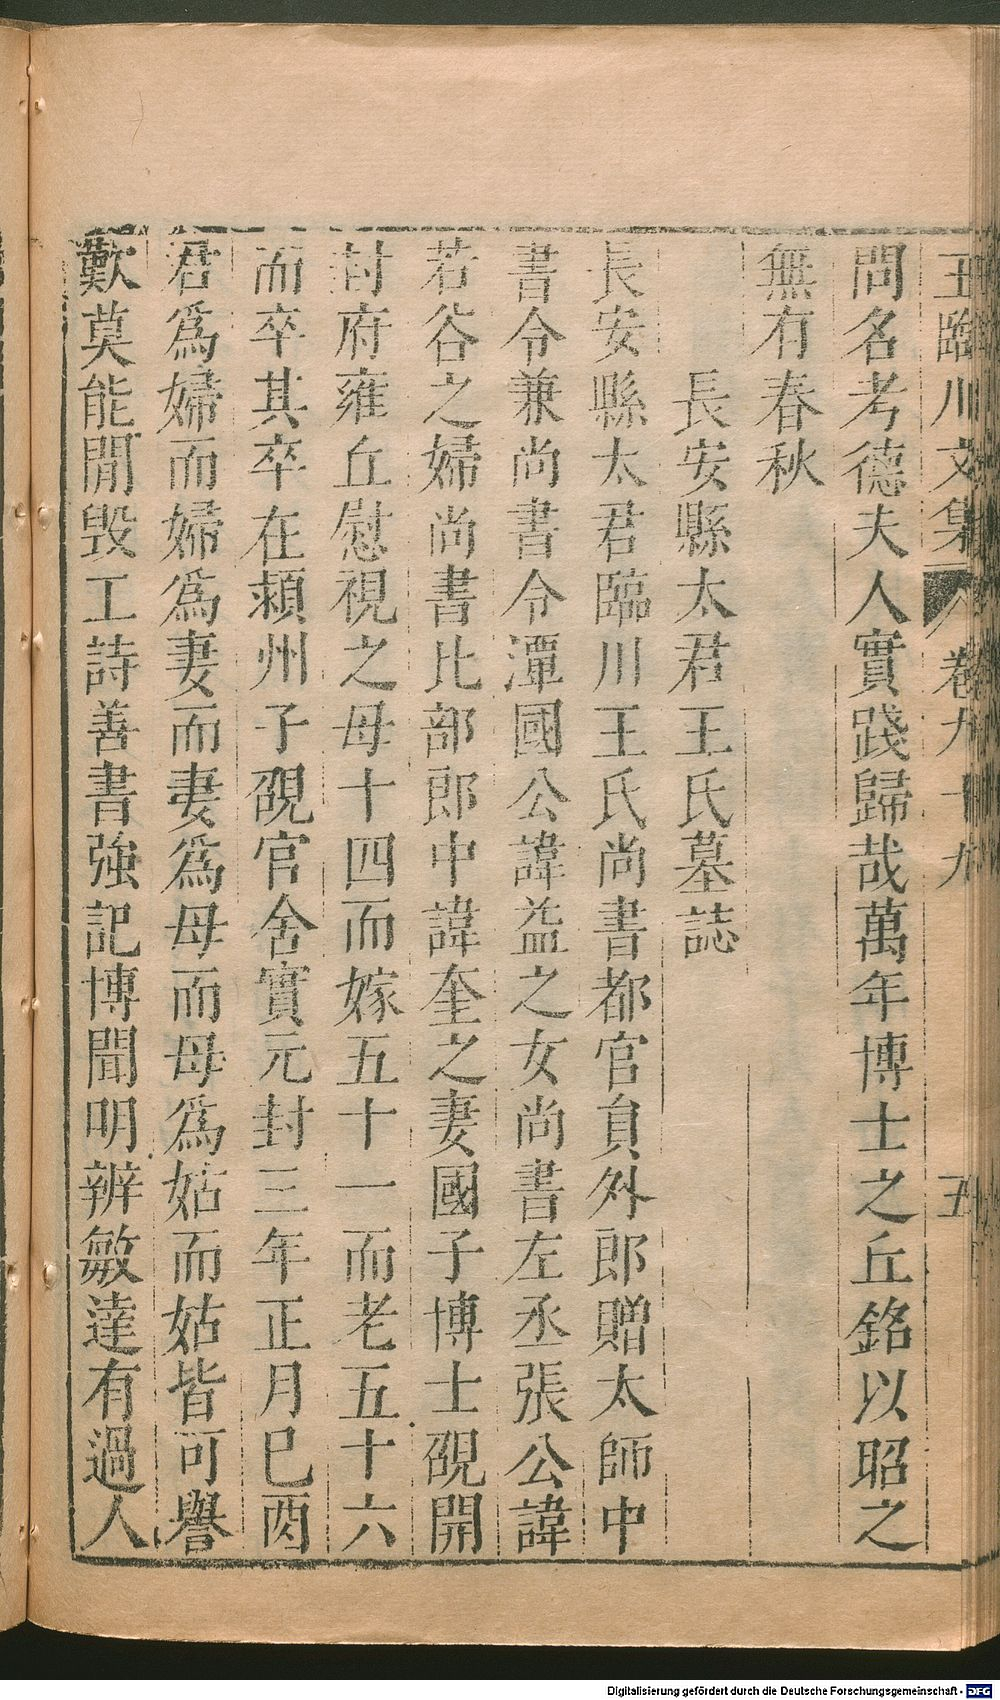 王臨川文集 卷九十九 五
問名考德夫人實踐歸哉萬年博士之丘銘以昭之
無有春秋
長安縣太君王氏墓誌
長安縣太君臨川王氏尚書都官員外郎贈太師中
書令兼尚書令潭國公諱益之女尚書左丞張公諱
若谷之婦尚書比部郎中諱奎之妻國子博士硯開
封府雍丘慰視之母十四而嫁五十一而老五十六
而卒其卒在潁州子硯官舍實元封三年正月已酉
君爲婦而婦爲妻而妻爲母而母爲姑而姑皆可譽
歎莫能閒毀工詩善書強記博聞明辨敏達有過人
Digitalisierung gefördert durch die Deutsche Forschungsgemeinschaft - DFG